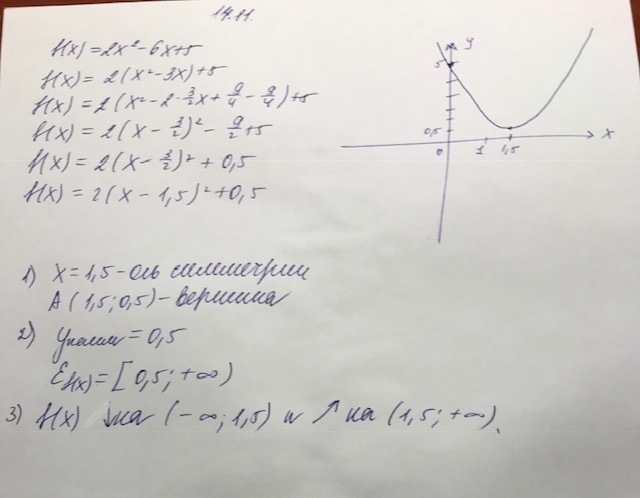 14.11.
f(x) = 2x² - 6x + 5
f(x) = 2(x² - 3x) + 5
f(x) = 2(x² - 2·3/2x + 9/4 - 9/4) + 5
f(x) = 2(x - 3/2)² - 9/2 + 5
f(x) = 2(x - 3/2)² + 0,5
f(x) = 2(x - 1,5)² + 0,5
y
5
0,5
0
1
1,5
x
1) x = 1,5 - ось симметрии
A(1,5; 0,5) - вершина
2) yнаим = 0,5
Ef(x) = [0,5; +∞)
3) f(x) ↓ на (-∞; 1,5) и ↑ на (1,5; +∞).